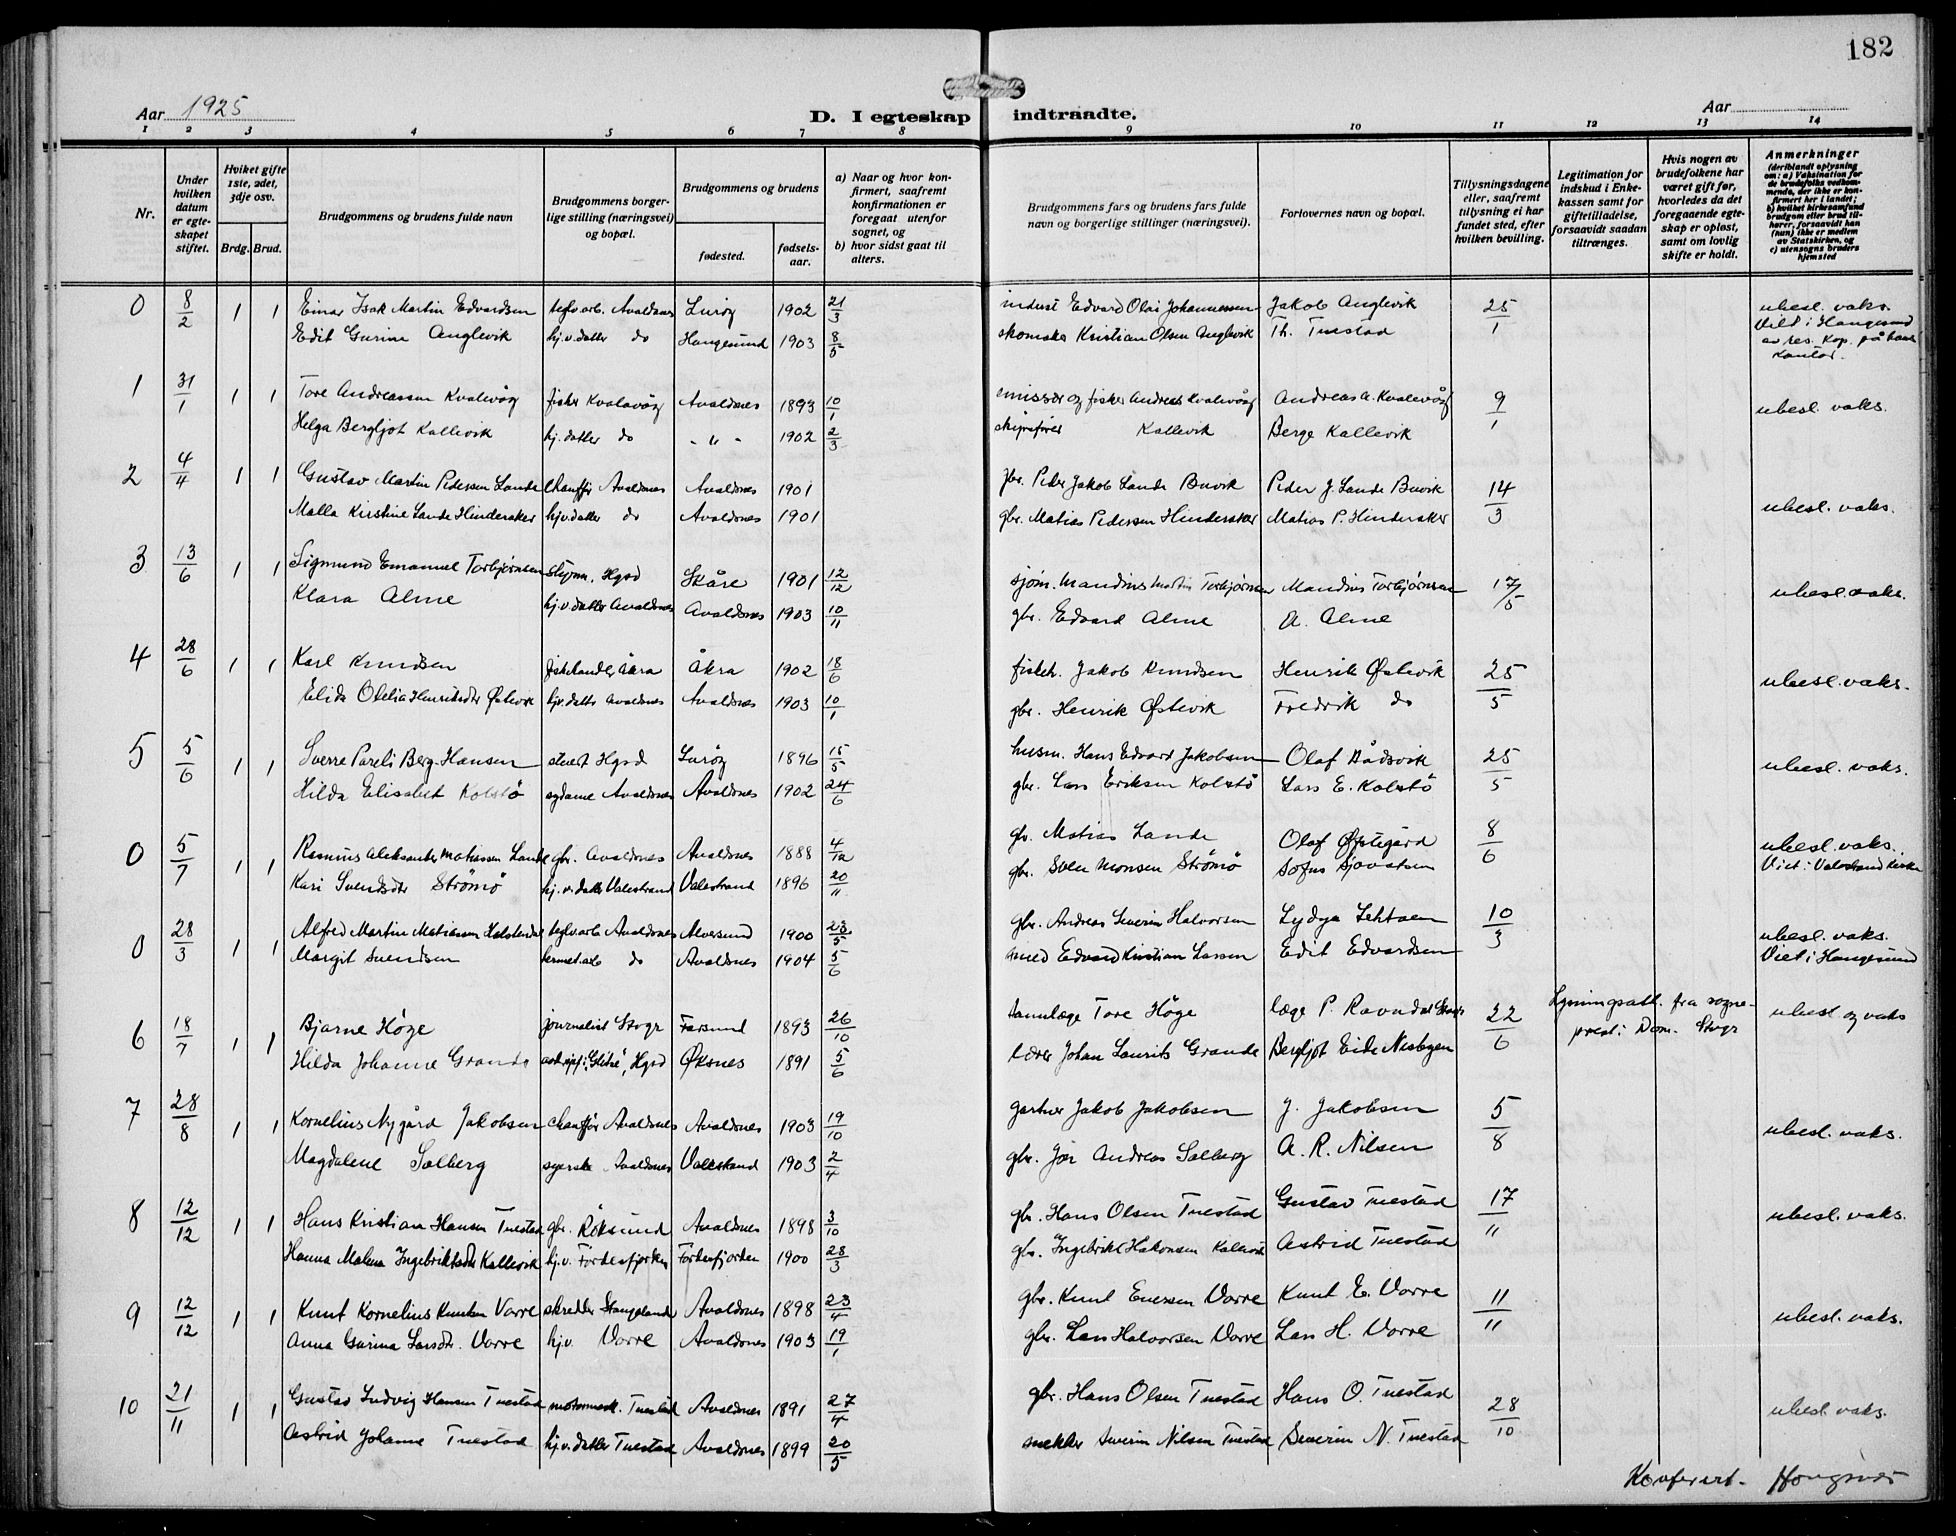 182
Aar 1925
D. I egteskap indtraadte.
Aar
1 2 3 4 5 6 7 8 9 10 11 12 13 14
Nr.
Under hvilken datum er egteskapet stiftet.
Hviket gifte 1ste, 2det, 3dje osv.
Brdg. Brud.
Brudgommens og brudens fulde navn
Brudgommens borgerlige stilling (næringsvei) og bopæl.
Brudgommens og brudens
fødested.
fødselsaar.
a) Naar og hvor konfirmert, saafremt konfirmationen er foregaat utenfor sognet, og
b) hvor sidst gaat til alters.
Brudgommens fars og brudens fars fulde navn og borgerlige stillinger (næringsvei).
Forlovernes navn og bopæl.
Tillysningsdagene eller, saafremt tillysning ei har fundet sted, efter hvilken bevilling.
Legitimation for indskud i Enkekassen samt for giftetilladelse, forsaavidt saadan tiltrænges.
Hvis nogen av brudefolkene har været gift før, hvorledes da det foregaaende egteskap er opløst, samt om lovlig skifte er holdt.
Anmerkninger (deriblandt oplysning om: a) Vaksination for de brudefolks vedkommende, der ikke er konfirmert her i landet; b) hvilket kirkesamfund brudgom eller brud tilhører, forsaavidt han (hun) ikke er medlem av Statskirken, og c) utensogns bruders hjemsted
0 8/2 1 1 Einar Isak Martin Edvardsen teglv.arb. Avaldsnes Lurøy 1902 21/3 indust Edvard Olai Johannessen Jakob Anglevik 25/1 ubesl. vaks.
Edit Gurine Anglevik hj.v.datter do Haugesund 1903 8/5 skomaker Kristian Olsen Anglevik Th. Tuestad Viet i Haugesund av res. Kap. på hans kontor.
1 31/1 1 1 Tore Andreassen Kvalevåg fisker Kvalavåg Avaldsnes 1893 10/1 misssør og fisker Andreas Kvalevåg Andreas A. Kvalevåg 9/1 ubesl. vaks.
Helga Bergljot Kallevik hj.datter do " 1902 2/3 skipsfører Kallevik Berge Kallevik
2 4/4 1 1 Gustav Martin Pedersen Lande chauffør Avaldsnes Avaldsnes 1901 gbr. Peder Jakob Lande Buvik Peder J. Lande Buvik 14/3 ubesl. vaks.
Malla Kirstine Lande Hinderaker hjv.datter do Avaldsnes 1901 gbr. Matias Pedersen Hinderaker Matias P. Hinderaker
3 13/6 1 1 Sigmund Emanuel Torbjørnsen styrm. Hgsd Skåre 1901 12/12 sjøm. Mandius Martin Torbjørnsen Mandius Torbjørnsen 17/5 ubesl. vaks.
Klara Alme hj.v.datter Avaldsnes Avaldsnes 1903 10/11 gbr. Edvard Alme A. Alme
4 28/6 1 1 Karl Knudsen fiskehandler Åkra Åkra 1902 18/6 fiskeh. Jakob Knudsen Henrik Østevik 25/5 ubesl. vaks.
Elida Olelia Henriksdtr Østevik hjv.datter Avaldsnes Avaldsnes 1903 10/1 gbr. Henrik Østevik Fredrik do
5 5/6 1 1 Sverre Pareli Berg-Hansen stuert Hgsd Lurøy 1896 15/5 husm. Hans Edvard Jakobsen Olaf Bådsvik 25/5 ubesl. vaks.
Hilda Elisabet Kolstø sydame Avaldsnes Avaldsnes 1902 24/6 gbr. Lars Eriksen Kolstø Lars E. Kolstø
0 5/7 1 1 Rasmus Aleksander Matiassen Lande gbr. Avaldsnes Avaldsnes 1888 4/12 gbr. Matias Lande Olaf Østegård 8/6 ubesl. vaks.
Kari Svendsdtr Strømø hj.v.datter Valestrand Valestrand 1896 20/11 gbr. Sven Monsen Strømø Viet i Valestrand kirke
0 28/3 1 1 Alfred Martin Matiassen teglv.arb Avaldsnes Alversund 1900 23/5 gbr. Andreas Severin Halvorsen Lydya 10/3 ubesl. vaks.
Margit Svendsen hermet.arb do Avaldsnes 1904 5/6 smed Edvard Kristian Larsen Edit Edvardsen Viet i Haugesund
6 18/7 1 1 Bjarne Høge journalist Stvgr Farsund 1893 26/10 tannlæge Tore Høge læge P. Ravndal Stvgr 22/6 Lysningsatt. fra sogneprest i Dom. Stvgr ubesl og vaks
Hilda Johanne Grande Hgsd Øksnes 1891 5/6 lærer Johan Laurits Grande Bergljot Eide
7 28/8 1 1 Kornelius Nygård Jakobsen chauffør Avaldsnes Avaldsnes 1903 19/10 gartner Jakob Jakobsen J. Jakobsen 5/8 ubesl. vaks.
Magdalene Solberg syerske Avaldsnes Valestrand 1903 2/4 gbr. Andreas Solberg A. R. Nilsen
8 12/12 1 1 Hans Kristian Hansen Tuestad gbr. Røksund Avaldsnes 1898 3/10 gbr. Hans Olsen Tuestad Gustav Tuestad 17/11 ubesl. vaks.
Hanna Malena Ingebriktsdtr Kallevik hj.v. Førdesfjorden Førdesfjorden 1900 28/3 gbr. Ingebrikt Hakonsen Kallevik Astrid Tuestad
9 12/12 1 1 Knut Kornelius Knutsen Vorre skredder Stangeland Avaldsnes 1898 23/4 gbr. Knut Enersen Vorre Knut E. Vorre 11/11 ubesl. vaks.
Anna Gurina Larsdtr. Vorre hj.v. Vorre Avaldsnes 1903 19/1 gbr. Lars Halvorsen Vorre Lars H. Vorre
10 21/11 1 1 Gustav Ludvig Hansen Tuestad motormek. Tuestad Avaldsnes 1891 27/4 gbr. Hans Olsen Tuestad Hans O. Tuestad 28/10 ubesl. vaks.
Astrid Johanne Tuestad hj.v.datter Tuestad Avaldsnes 1899 20/5 snekker Severin Nilsen Tuestad Severin N. Tuestad
Konferert.